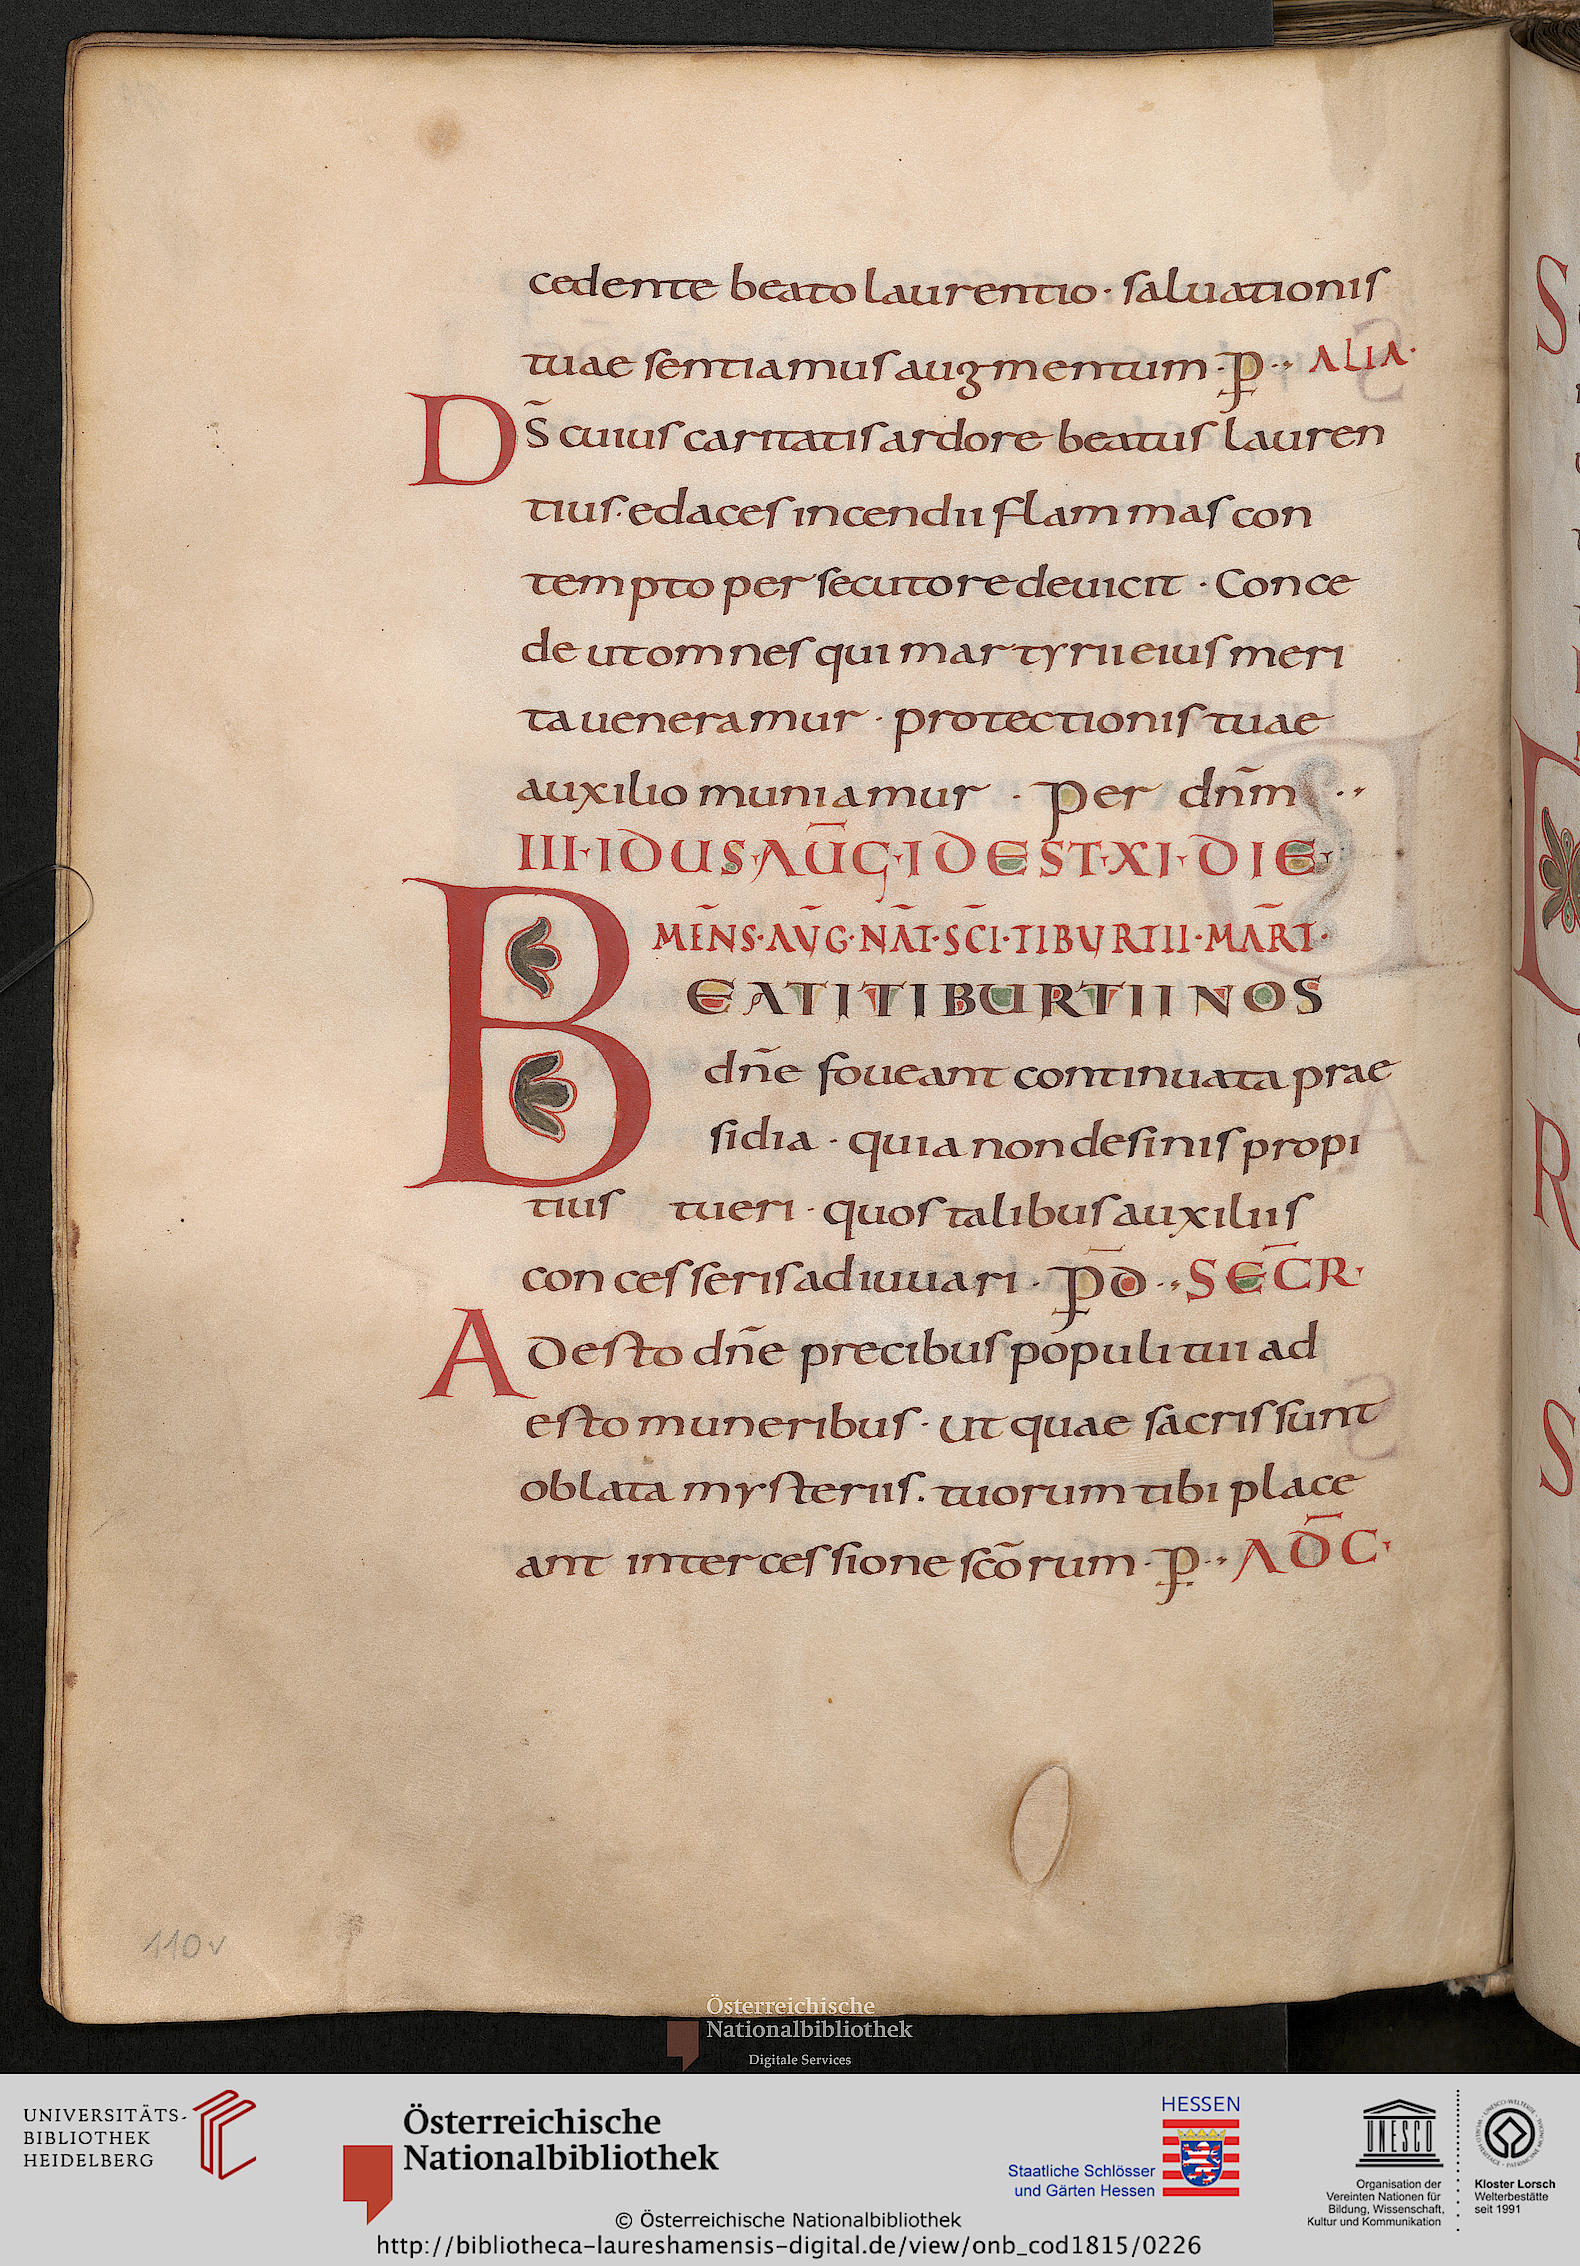 cedente beato laurentio · saluationis
tuae sentiamus augmentum · p̄ ·· ALIA·
DS̄ cuius caritatis ardore beatus lauren
tius · edaces incendii flammas con
tempto persecutore deuicit · Conce
de ut omnes qui martyrii eius meri
ta ueneramur · protectionis tuae
auxilio muniamur · Per dn̄m ··
III · IDUS · AŪG · IDEST · XI · DIE
MĒNS · AV̄G · NĀT · SC̄I · TIBURTII · MĀRT ·
BEATI TIBURTII NOS
dn̄e foueant continuata prae
sidia · quia non desinis propi
tius tueri · quos talibus auxiliis
concesseris adiuuari · p̄d ·· SEC̄R·
Adesto dn̄e precibus populi tui ad
esto muneribus · ut quae sacris sunt
oblata mysteriis · tuorum tibi place
ant intercessione scōrum · p ·· AD̄C·
110v
Österreichische
Nationalbibliothek
Digitale Services
UNIVERSITÄTS-
BIBLIOTHEK
HEIDELBERG
Österreichische
Nationalbibliothek
HESSEN
Staatliche Schlösser
und Gärten Hessen
UNESCO
Organisation der
Vereinten Nationen für
Bildung, Wissenschaft,
Kultur und Kommunikation
Kloster Lorsch
Welterbestätte
seit 1991
© Österreichische Nationalbibliothek
http://bibliotheca-laureshamensis-digital.de/view/onb_cod1815/0226